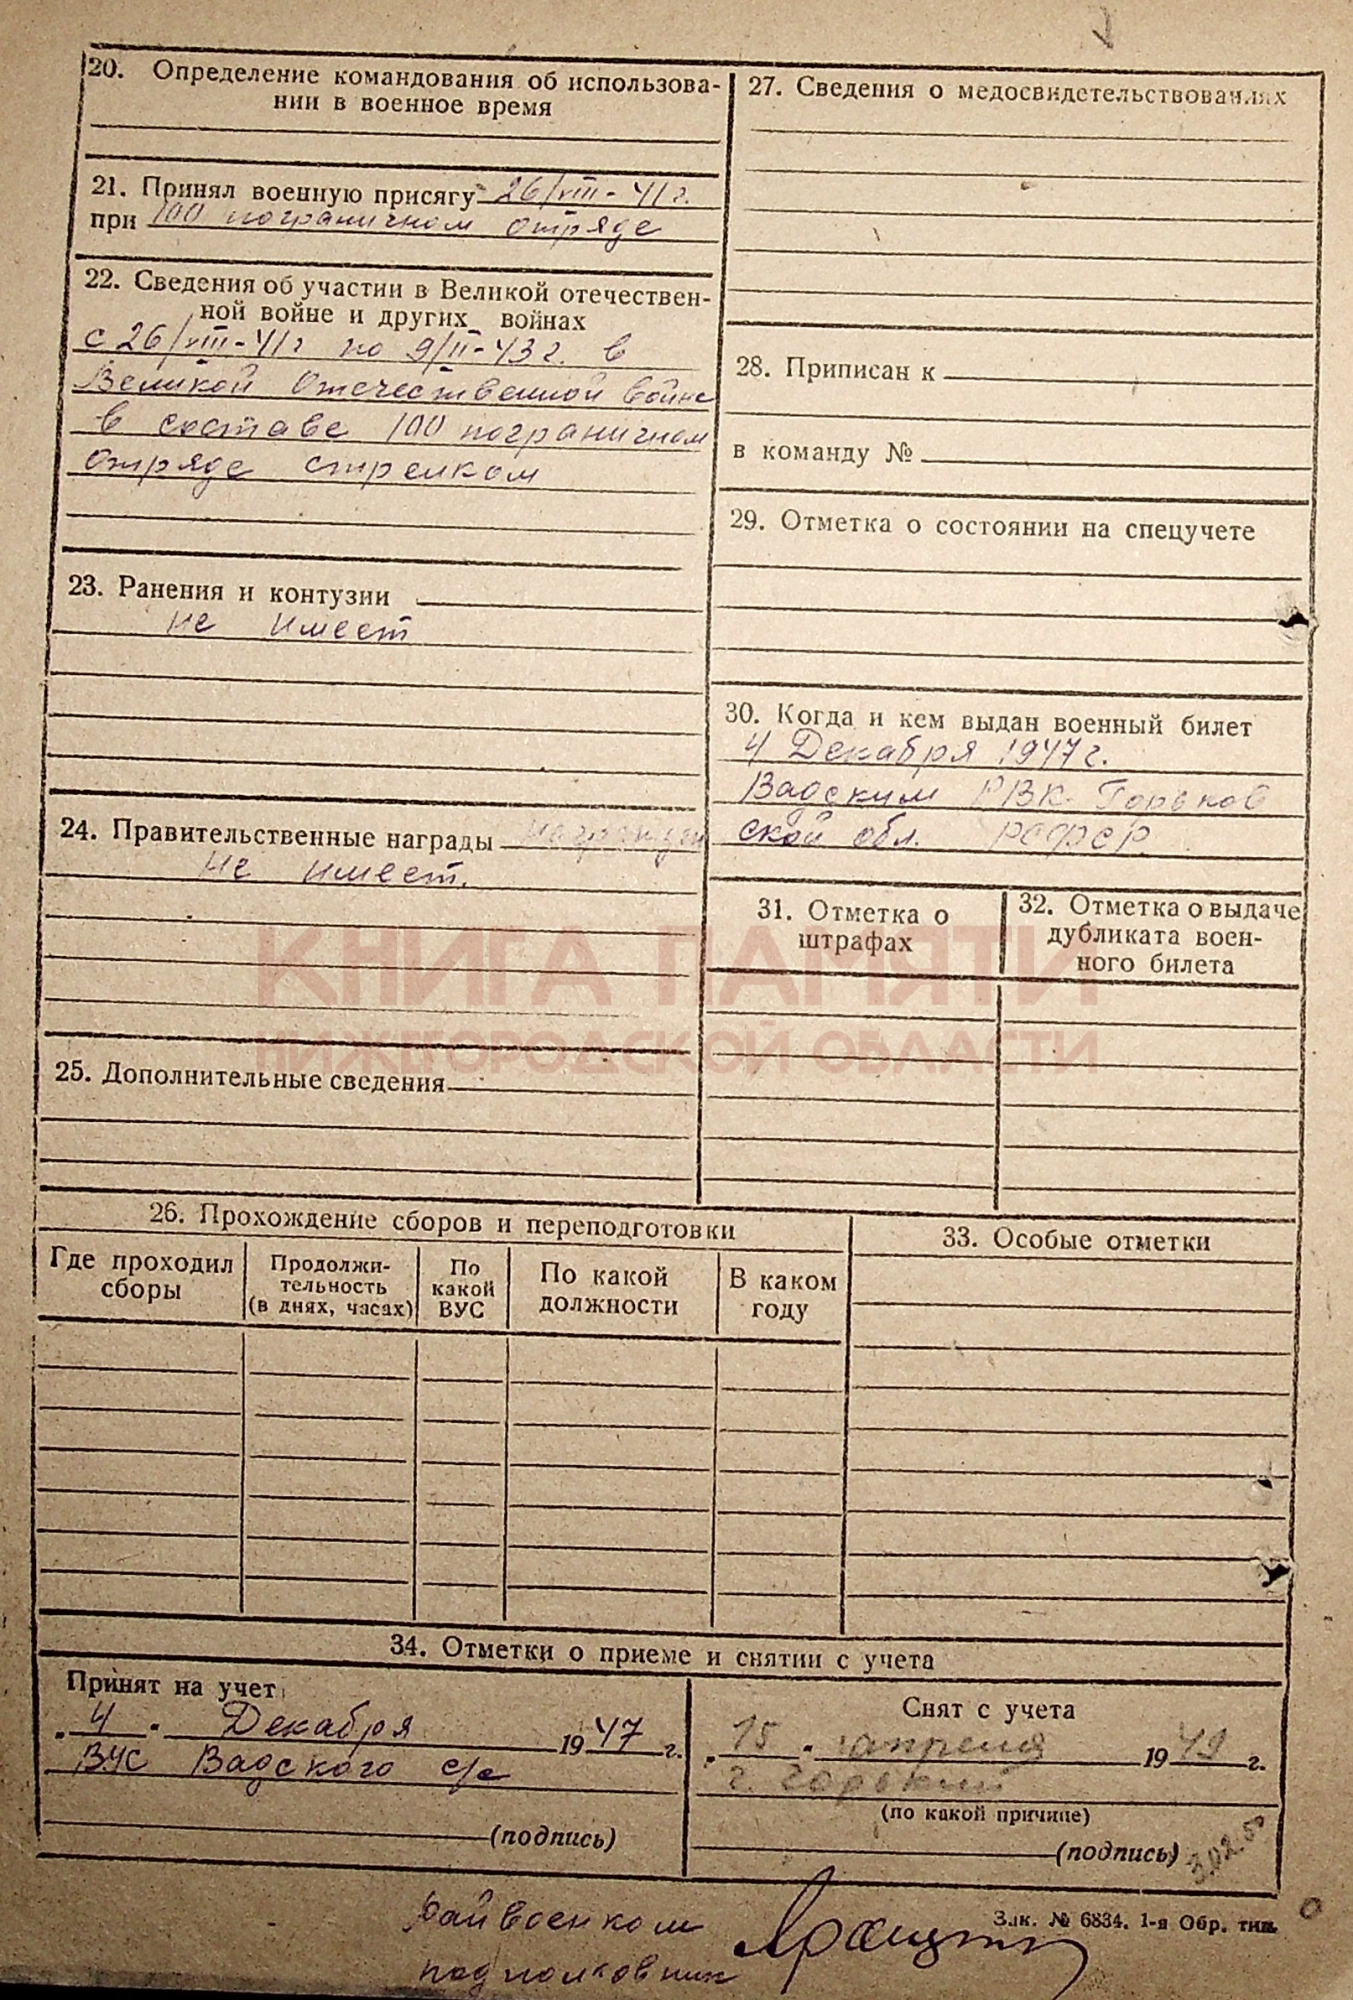 20. Определение командования об использова-
нии в военное время
21. Принял военную присягу 26/VIII-41г.
при 100 пограничном отряде
22. Сведения об участии в Великой отечествен-
ной войне и других войнах
с 26/VIII-41г по 9/II-43г. в
Великой Отечественной войне
в составе 100 пограничном
отряде стрелком
23. Ранения и контузии
не имеет
24. Правительственные награды
не имеет.
25. Дополнительные сведения
27. Сведения о медосвидетельствованиях
28. Приписан к
в команду №
29. Отметка о состоянии на спецучете
30. Когда и кем выдан военный билет
4 Декабря 1947г.
Вадским РВК Горьков
ской обл. РСФСР
31. Отметка о
штрафах
32. Отметка о выдаче
дубликата воен-
ного билета
КНИГА ПАМЯТИ
НИЖЕГОРОДСКОЙ ОБЛАСТИ
26. Прохождение сборов и переподготовки
Где проходил
сборы
Продолжи-
тельность
(в днях, часах)
По
какой
ВУС
По какой
должности
В каком
году
33. Особые отметки
34. Отметки о приеме и снятии с учета
Принят на учет
"4" Декабря 1947 г.
ВУС Вадского с/с
(подпись)
Снят с учета
"15" апреля 1949 г.
г. Горький
(по какой причине)
(подпись)
Зак. № 6834. 1-я Обр. тип.
Райвоенком
подполковник